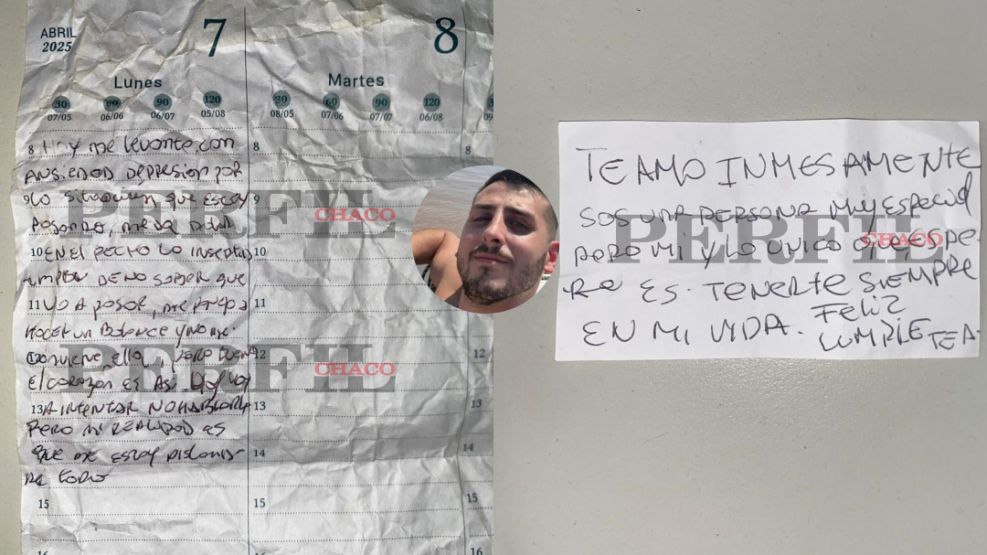 ABRIL 7 8
2025
Lunes Martes
30 90 120 60 90 120
07/05 06/06 06/07 05/08 08/05 07/06 07/07 06/08
8 Hoy me levante con 8 8
ANSIEDAD DEPRESION POR
9 LA situacion que estoy 9 9
PASANDO, me da
10 EN EL PECHO LA 10 10
DE NO SABER que
11 VA A PASAR, me pongo a 11 11
HACER un Balance y no me
conviene ella, pero bueno 12 12
El corazon es Asi Hoy voy
13 A INTENTAR NO HABLARLE 13 13
PERO mi REALIDAD es
que me estoy 14 14
DE todo
15 15 15
16 16
PERFIL
CHACO
PERFIL
CHACO
TE AMO INMESAMENTE
SOS UNA PERSONA MUY ESPECIAL
PARA MI Y LO UNICO Q ESPE
RO ES. TENERTE SIEMPRE
EN MI VIDA. FELIZ
CUMPLE TEA.
PERFIL
CHACO